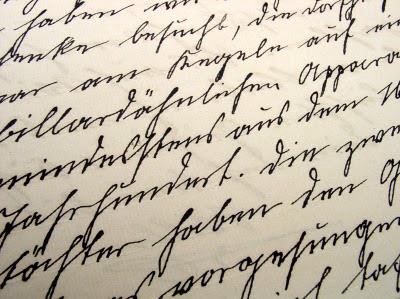 haben
denke besucht, die dorf
war am Kegeln auf ei
billardähnlichen Appara
mindesttens aus dem 16
Jahrhundert. Die zwe
töchter haben den G
vorgesungen
ich ta